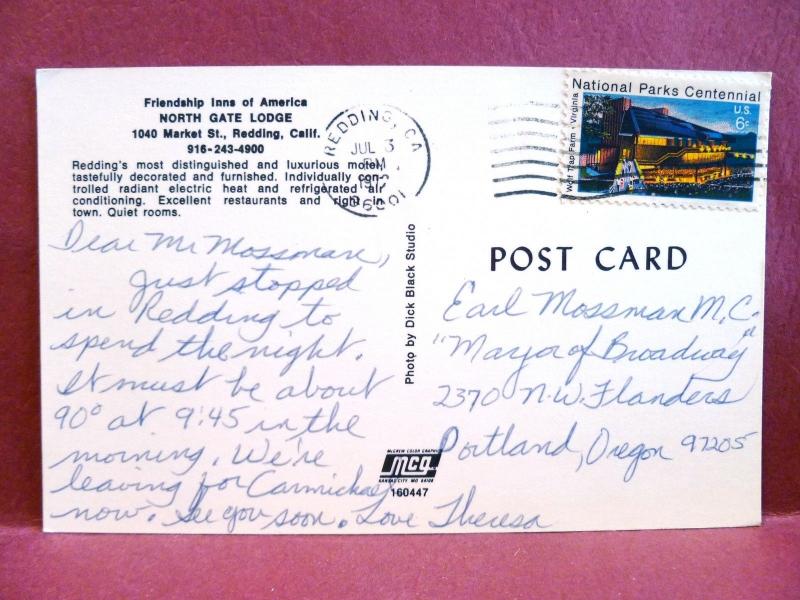 Friendship Inns of America
NORTH GATE LODGE
1040 Market St., Redding, Calif.
916-243-4900
Redding's most distinguished and luxurious motel,
tastefully decorated and furnished. Individually con-
trolled radiant electric heat and refrigerated air
conditioning. Excellent restaurants and right in
town. Quiet rooms.
REDDING, CA
JUL 3
PM
National Parks Centennial
U.S.
6c
Wolf Trap Farm • Virginia
Dear Mr Mossman,
Just stopped
in Redding to
spend the night.
It must be about
90° at 9:45 in the
morning. We're
leaving for Carmichael
now. See you soon. Love Theresa
Photo by Dick Black Studio
POST CARD
Earl Mossman M.C.
"Mayor of Broadway"
2370 N.W. Flanders
Portland, Oregon 97205
McGREW COLOR GRAPHICS
mcg
KANSAS CITY, MO 64108
160447